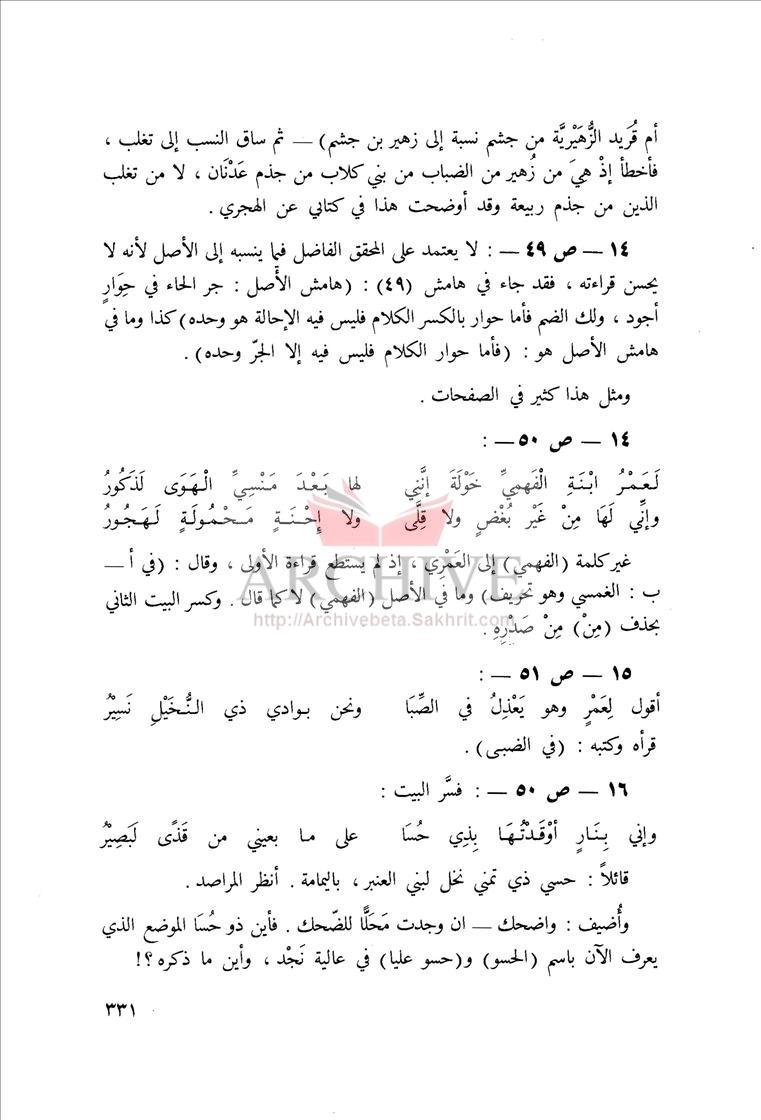 أم قُرَيد الزُّهَيْرِيَّة من جشم نسبة إلى زهير بن جشم) — ثم ساق النسب إلى تغلب ،
فأخطأ إذْ هِيَ من زُهير من الضباب من بني كلاب من جذم عَدْنَان ، لا من تغلب
الذين من جذم ربيعة وقد أوضحت هذا في كتابي عن الهجري .
١٤ — ص ٤٩ — : لا يعتمد على المحقق الفاضل فيما ينسبه إلى الأصل لأنه لا
يحسن قراءته ، فقد جاء في هامش (٤٩) : (هامش الأصل : جر الحاء في حِوَارٍ
أجود ، ولك الضم فأما حوار بالكسر الكلام فليس فيه الإحالة هو وحده) كذا وما في
هامش الأصل هو : (فأما حوار الكلام فليس فيه إلا الجرّ وحده) .
ومثل هذا كثير في الصفحات .
١٤ — ص ٥٠ — :
لَـعَـمْـرُ ابْـنَـةِ الْفَهميِّ خَوْلَةَ إنَّنِي لها بَـعْـدَ مَـنْـسِيِّ الْـهَـوَى لَذَكُورُ
وإنِّي لَهَا مِنْ غَيْر بُغْضٍ ولا قِلًى ولا إحْـنَـةٍ مَـحْـمُـولَـةٍ لَـهَـجُـورُ
غير كلمة (الفهمي) إلى العَمْرِي ، إذ لم يستطع قراءة الأولى ، وقال : (في أ —
ب : الغمسي وهو تحريف) وما في الأصل (الفهمي) لا كما قال . وكسر البيت الثاني
بحذف (مِنْ) مِنْ صَدْرِهِ .
١٥ — ص ٥١ — :
أقول لِعَمْرٍ وهو يَعْذِلُ في الصِّبَا ونحن بـوادي ذي الـنُّـخَيْلِ نَسِيْرُ
قرأه وكتبه : (في الضبى) .
١٦ — ص ٥٠ — : فسَّر البيت :
وإني بِـنَـارٍ أوْقَـدْتُـهَـا بِذِي حُسَا على مـا بعيني من قَذًى لَبَصِيْرُ
قائلاً : حسي ذي تمني نخل لبني العنبر ، باليمامة . أنظر المراصد .
وأُضيف : واضحك — ان وجدت مَحَلًّا للضّحك . فأين ذو حُسَا الموضع الذي
يعرف الآن باسم (الحسو) و(حسو عليا) في عالية نَجْد ، وأين ما ذكره ؟!
٣٣١
ARCHIVE
http://Archivebeta.Sakhrit.com